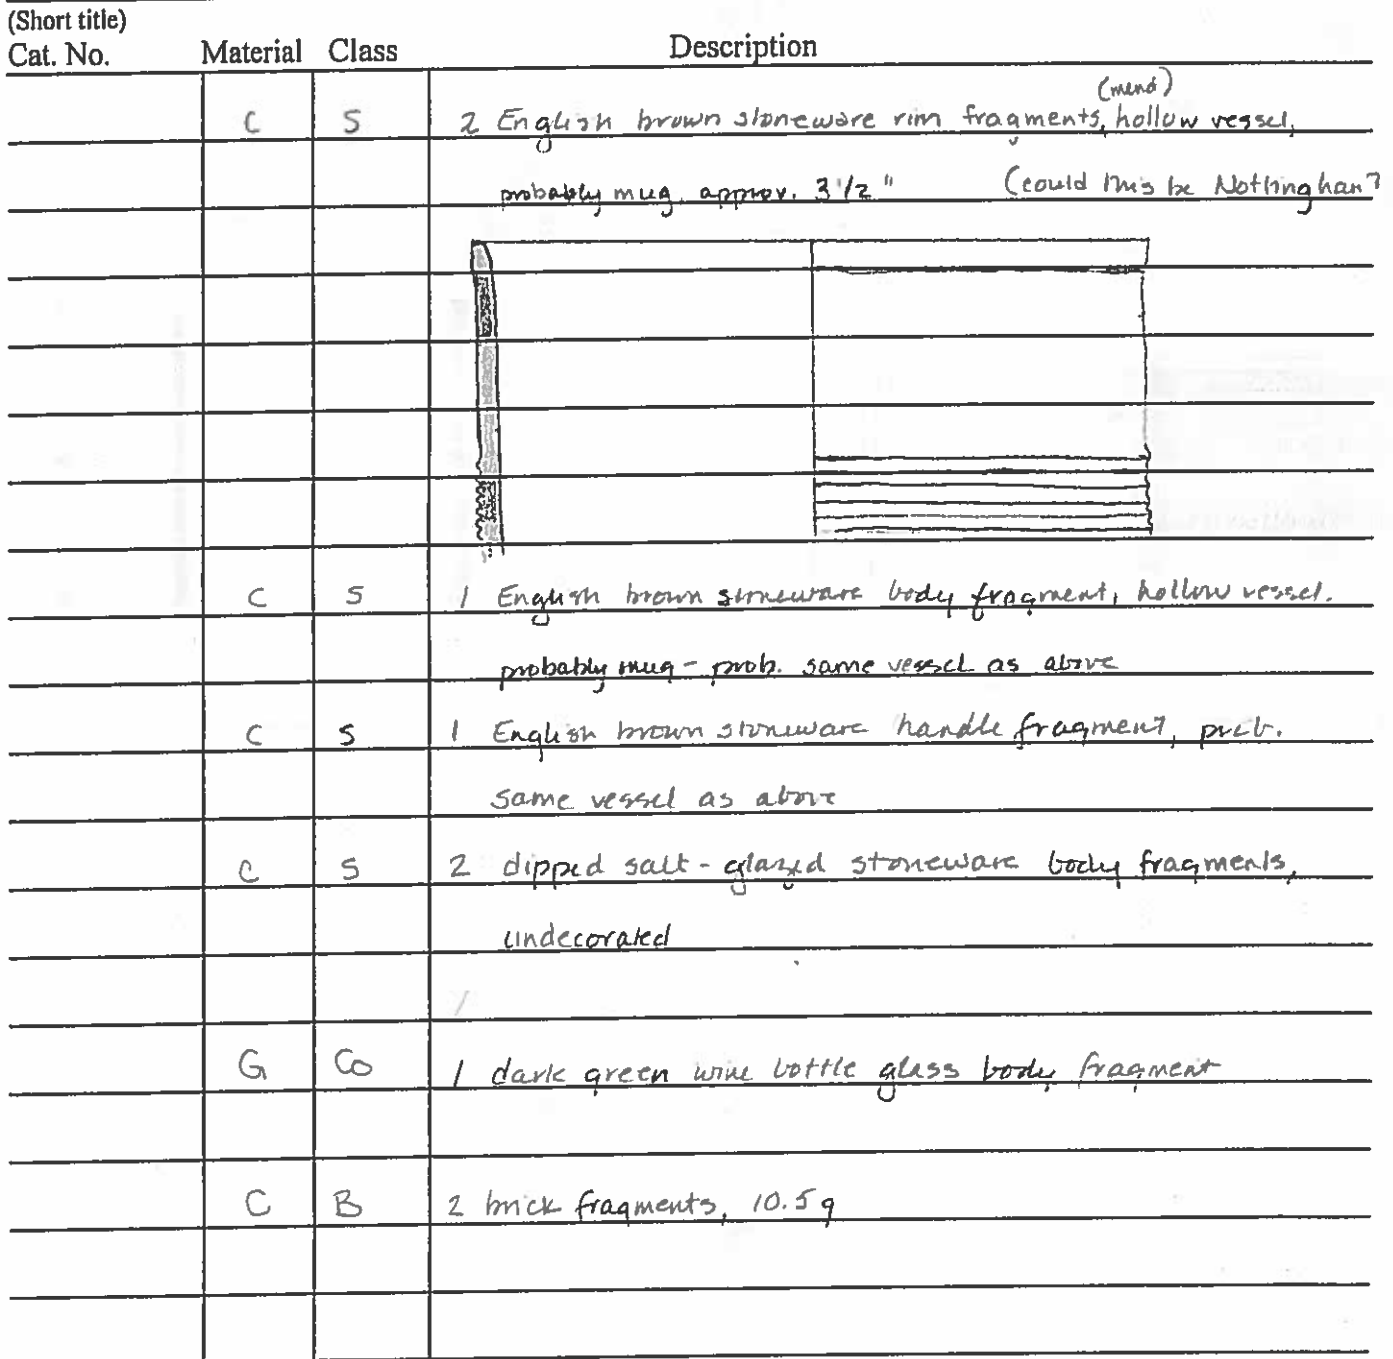 (Short title)
Cat. No. Material Class Description
(mend)
C S 2 English brown stoneware rim fragments, hollow vessel,
probably mug. approx. 3 1/2 " (could this be Nottingham?
C S 1 English brown stoneware body fragment, hollow vessel.
probably mug - prob. same vessel as above
C S 1 English brown stoneware handle fragment, prob.
same vessel as above
C S 2 dipped salt-glazed stoneware body fragments,
undecorated
G Co 1 dark green wine bottle glass body fragment
C B 2 brick fragments, 10.5g